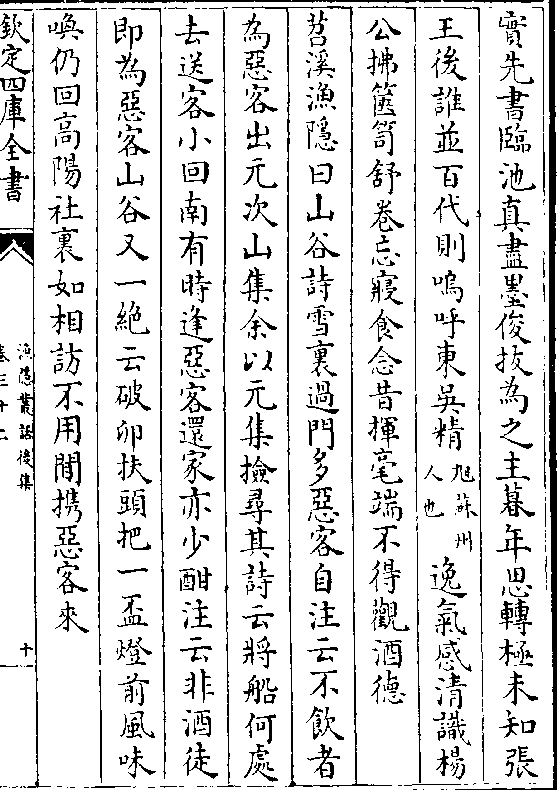 實先書臨池真盡墨俊拔為之主暮年思轉極未知張
王後誰並百代則嗚呼東吳精旭蘇州人也逸氣感清識楊
公拂篋笥舒卷忘寢食念昔揮毫端不得觀酒德
苕溪漁隱曰山谷詩雪裏過門多惡客自注云不飲者
為惡客出元次山集余以元集撿尋其詩云將船何處
去送客小回南有時逢惡客還家亦少酣注云非酒徒
即為惡客山谷又一絶云破卯扶頭把一盃燈前風味
喚仍回高陽社裏如相訪不用閒携惡客來
欽定四庫全書
漁隱叢話後集
卷三十二
十